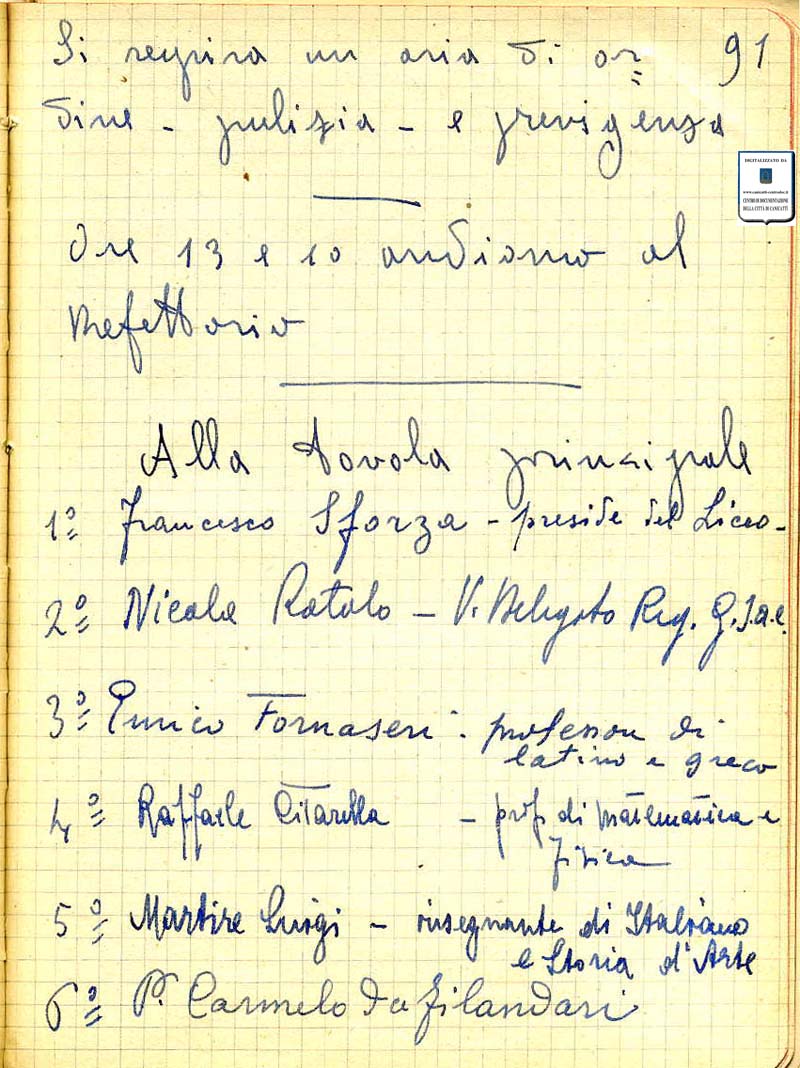 Si respira un aria di or= 91
dine - pulizia - e previgenza
DIGITALIZZATO DA
www.canicatti-centrodoc.it
CENTRO DI DOCUMENTAZIONE
DELLA CITTÀ DI CANICATTÌ
Ore 13 e 10 andiamo al
Refettorio
Alla tavola principale
1º Francesco Sforza - preside del Liceo -
2º Nicola Ratalo - V. Delegato Reg. G.I.a.c.
3º Enrico Fornaseri - professore di
latino e greco
4º Raffaele Citarella - prof. di matematica e
fisica
5º Martire Luigi - insegnante di Italiano
e Storia d'Arte
6º P. Carmelo da Filandari